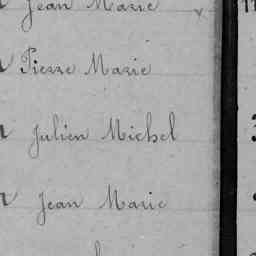 Jean Marie
Pierre Marie
Julien Michel
Jean Marie